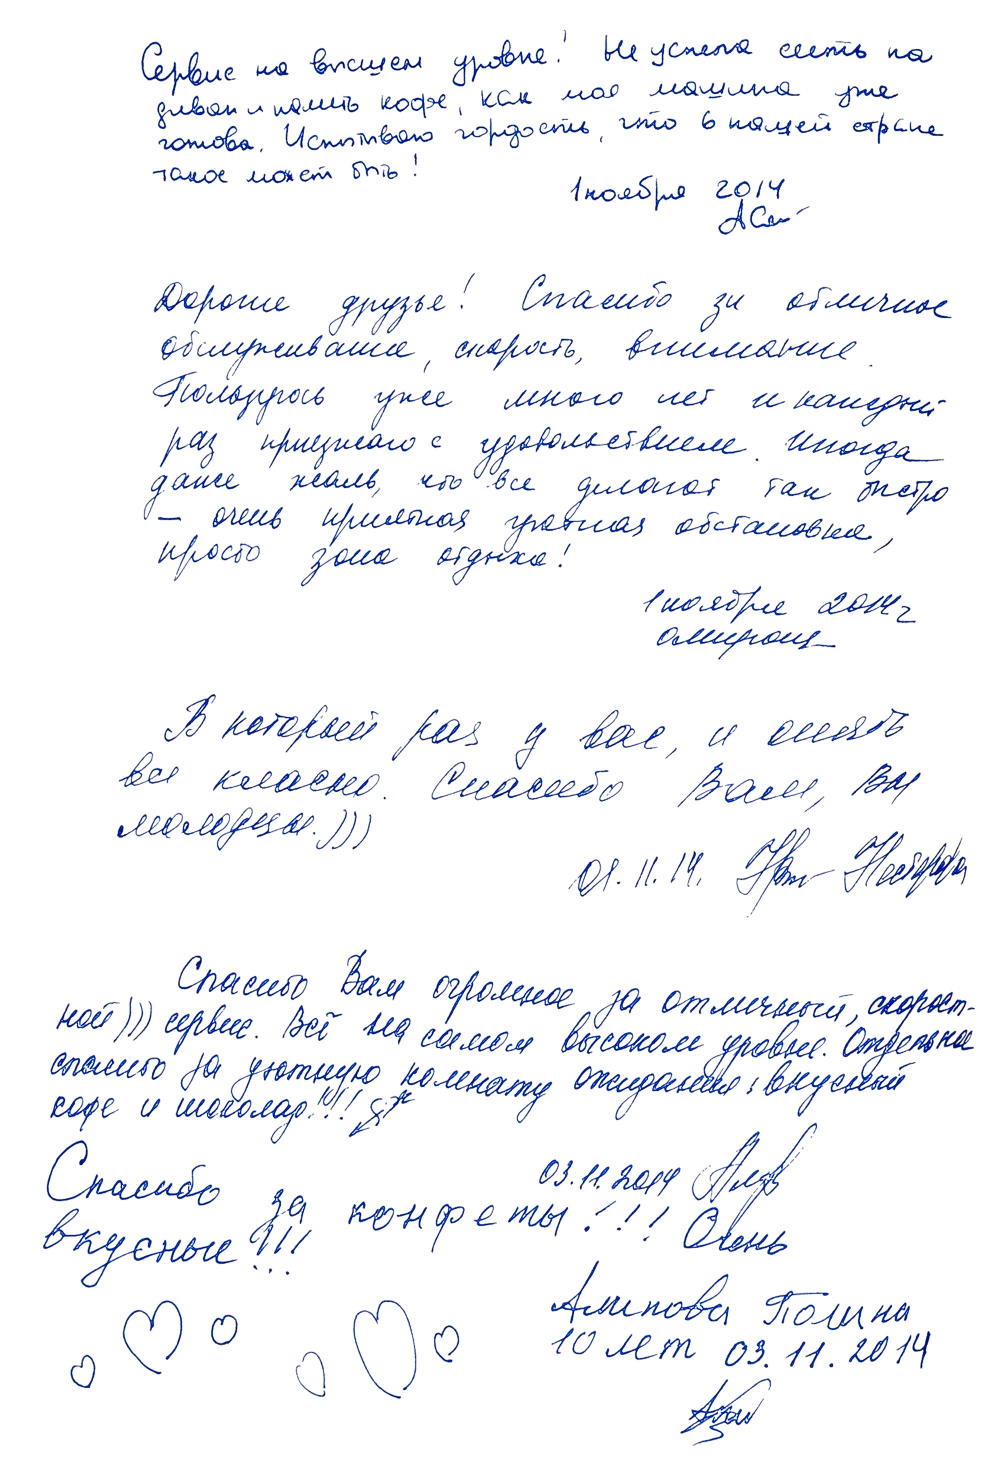 Сервис на высшем уровне! Не успела сесть на
диван и налить кофе, как моя машина уже
готова. Испытываю гордость, что в нашей стране
такое может быть!
1 ноября 2014
Дорогие друзья! Спасибо за отличное
обслуживание, скорость, внимание.
Пользуюсь уже много лет и каждый
раз приезжаю с удовольствием. Иногда
даже жаль, что все делают так быстро
– очень приятная уютная обстановка,
просто зона отдыха!
1 ноября 2014г
В который раз у вас, и опять
все класно. Спасибо Вам, Вы
молодцы.)))
01.11.14.
Спасибо Вам огромное за отличный, скорост-
ной))) сервис. Всё на самом высоком уровне. Отдельное
спасибо за уютную комнату ожидания, вкусный
кофе и шоколад!!!
03.11.2014
Спасибо за конфеты!!! Очень
вкусные!!!
Алипова Полина
10 лет 03.11.2014